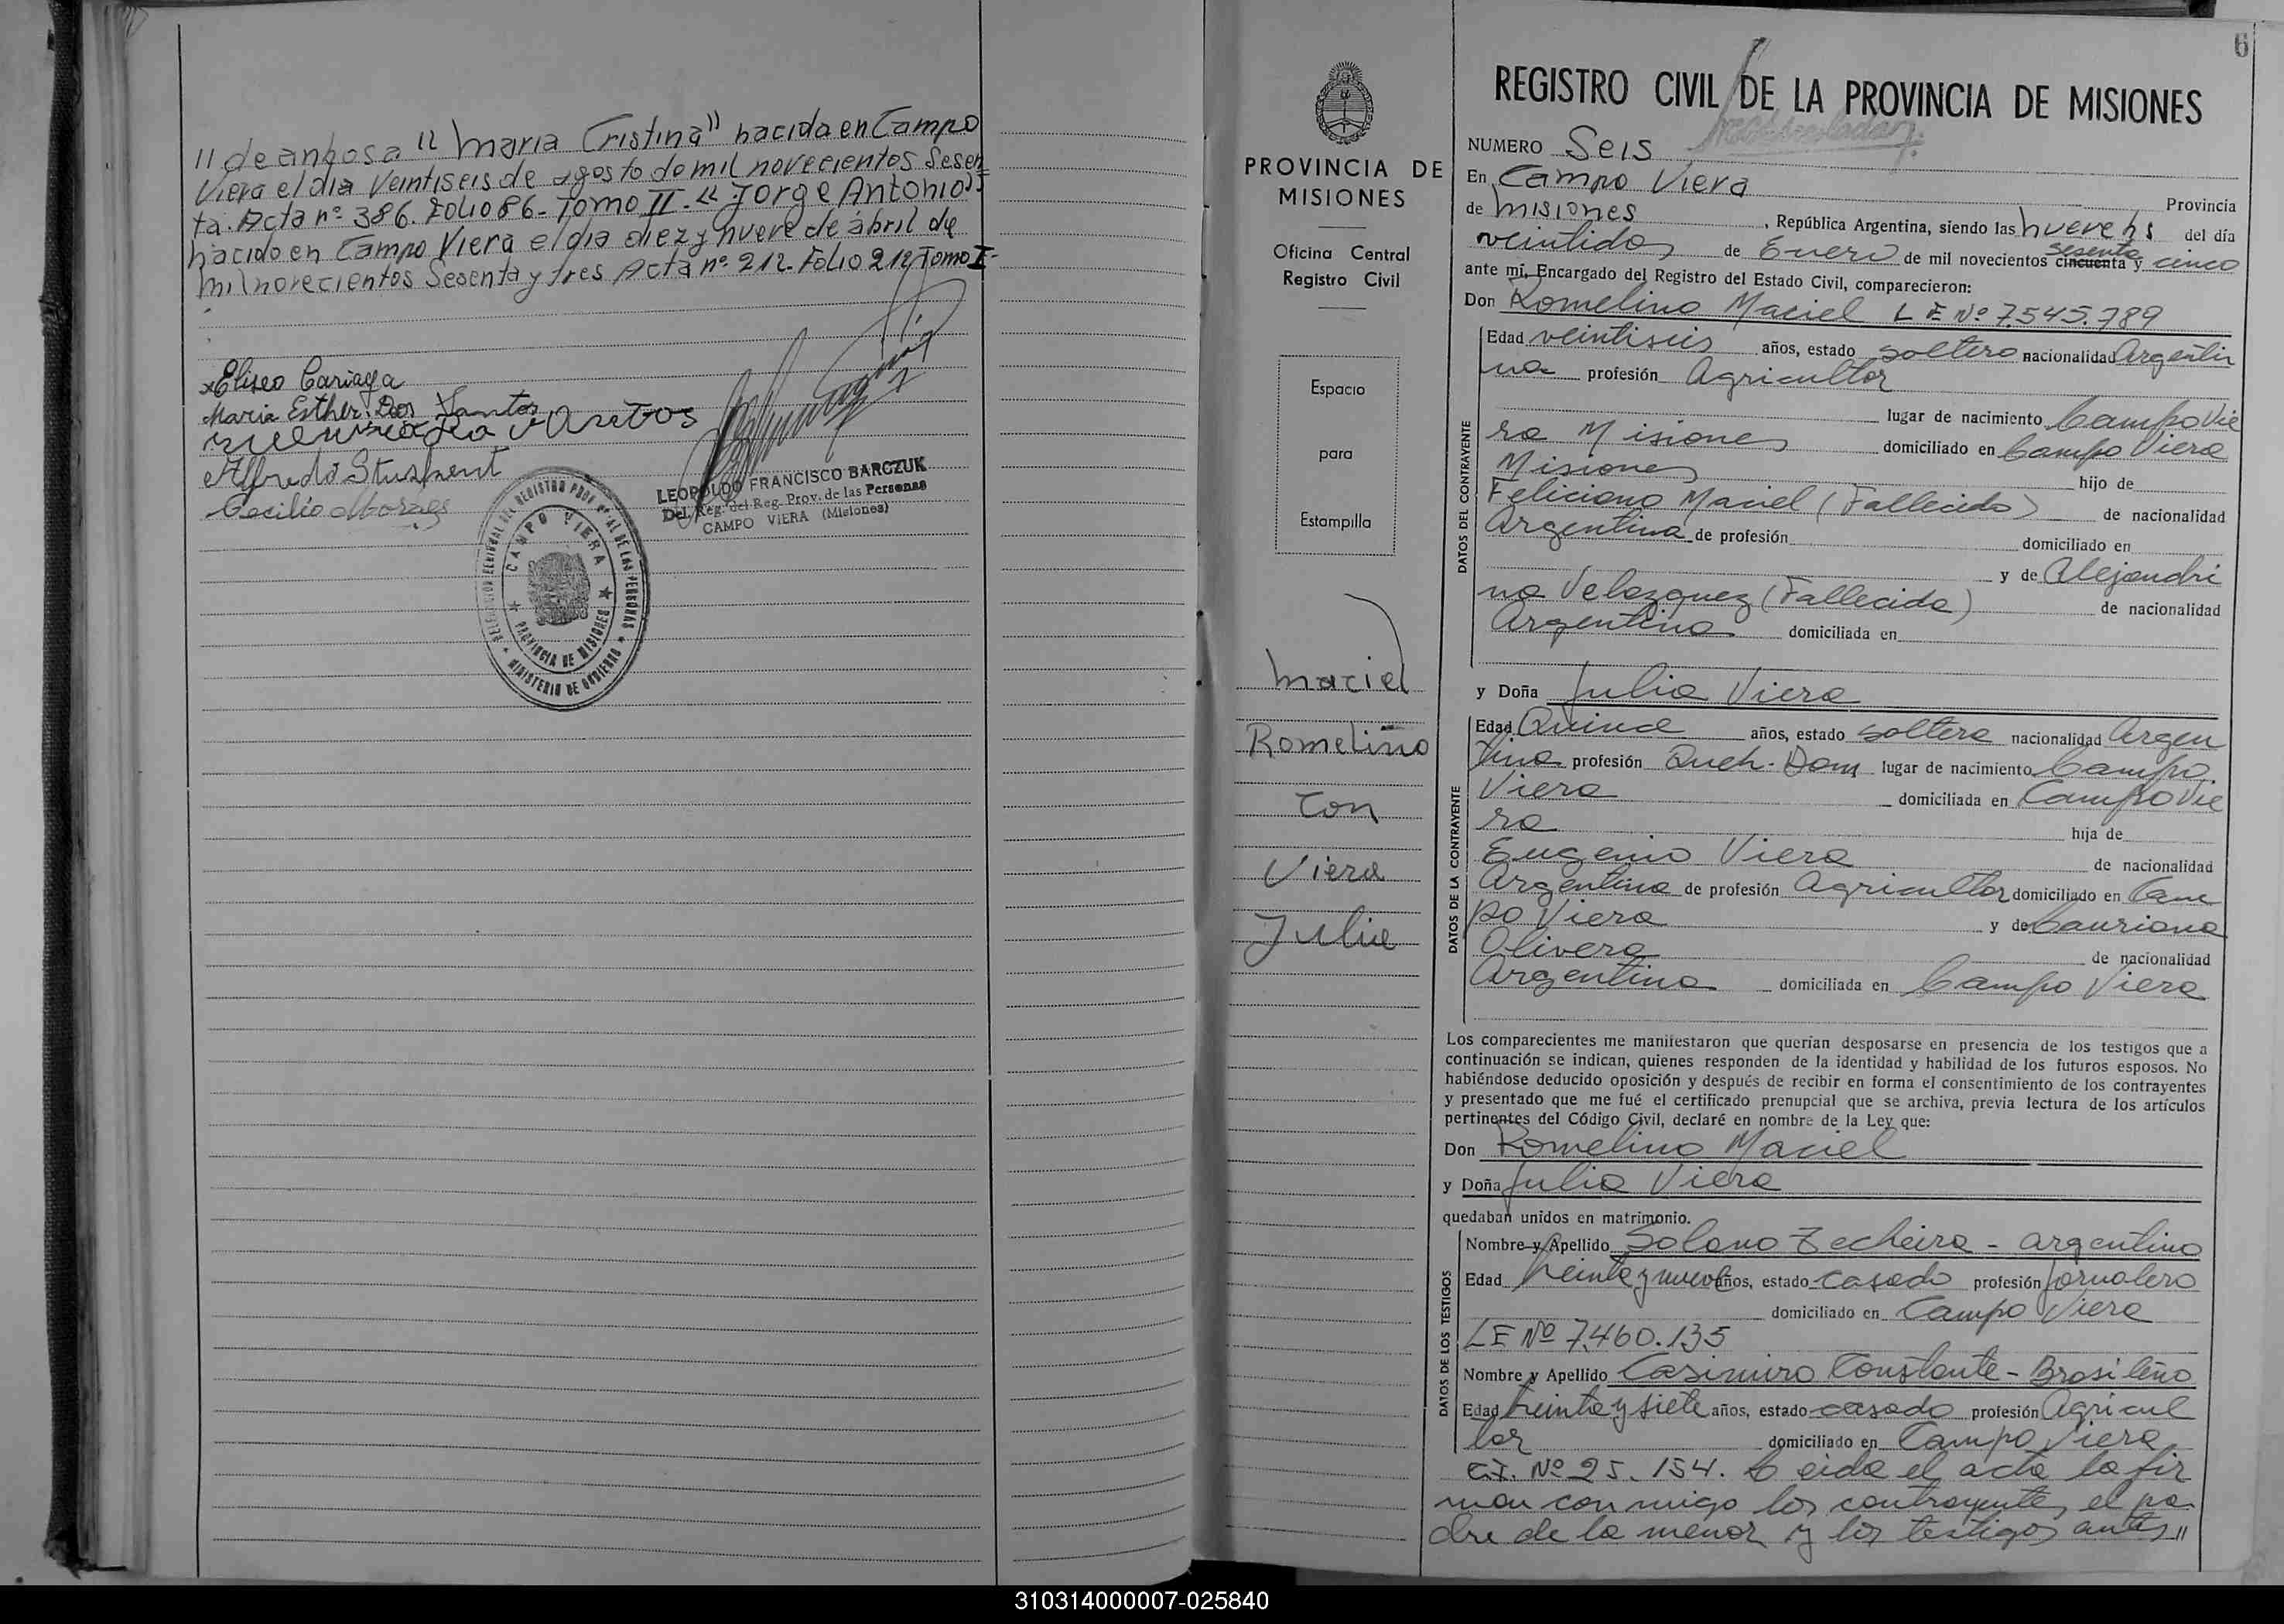 // de anbosa "Maria Cristina" nacida en Campo
Viera el día Veintiseis de agosto de mil novecientos Sesen
ta. Acta nº 386. Folio 86- Tomo II- "Jorge Antonio"
nacido en Campo Viera el dia diez y nueve de ábril de
mil novecientos Sesenta y tres Acta nº 212- Folio 212 Tomo I-
Eliseo Cariaga
Maria Esther Dos Santos
Alfredo
Cecilio Moraes
LEOPOLDO FRANCISCO BARCZUK
Del. Reg. del Reg. Prov. de las Personas
CAMPO VIERA (Misiones)
CAMPO VIERA
PROVINCIA DE MISIONES
MINISTERIO DE GOBIERNO
PROVINCIA DE
MISIONES
Oficina Central
Registro Civil
Espacio
para
Estampilla
Maciel
Romelino
Con
Viera
Julia
6
REGISTRO CIVIL DE LA PROVINCIA DE MISIONES
NUMERO Seis
En Campo Viera Provincia
de Misiones, República Argentina, siendo las nueve hs del día
veintidos de Enero de mil novecientos cincuenta sesenta y cinco
ante mí, Encargado del Registro del Estado Civil, comparecieron:
Don Romelino Maciel L E Nº 7.545.789
DATOS DEL CONTRAYENTE
Edad veintiseis años, estado soltero nacionalidad Argenti
na profesión Agricultor
lugar de nacimiento Campo Vie
ra Misiones domiciliado en Campo Viera
Misiones hijo de
Feliciano Maciel (Fallecido) de nacionalidad
Argentina de profesión domiciliado en
y de Alejandri
na Velazquez (Fallecida) de nacionalidad
Argentina domiciliada en
y Doña Julia Viera
DATOS DE LA CONTRAYENTE
Edad Quince años, estado soltera nacionalidad Argen
tina profesión Queh. Dom lugar de nacimiento Campo
Viera domiciliada en Campo Vie
ra hija de
Eugenio Viera de nacionalidad
Argentina de profesión Agricultor domiciliado en Cam
po Viera y de Lauriana
Olivera de nacionalidad
Argentina domiciliada en Campo Viera
Los comparecientes me manifestaron que querían desposarse en presencia de los testigos que a
continuación se indican, quienes responden de la identidad y habilidad de los futuros esposos. No
habiéndose deducido oposición y después de recibir en forma el consentimiento de los contrayentes
y presentado que me fué el certificado prenupcial que se archiva, previa lectura de los artículos
pertinentes del Código Civil, declaré en nombre de la Ley que:
Don Romelino Maciel
y Doña Julia Viera
quedaban unidos en matrimonio.
DATOS DE LOS TESTIGOS
Nombre y Apellido Solano Techeira - argentino
Edad treinta y nueve años, estado casado profesión jornalero
domiciliado en Campo Viera
LE Nº 7.460.135
Nombre y Apellido Casimiro Constante - Brasileño
Edad treinta y siete años, estado casado profesión Agricul
tor domiciliado en Campo Viera
C.I. Nº 25.154. Leida el acta la fir
man conmigo los contrayentes, el pa
dre de la menor y los testigos antes //
310314000007-025840